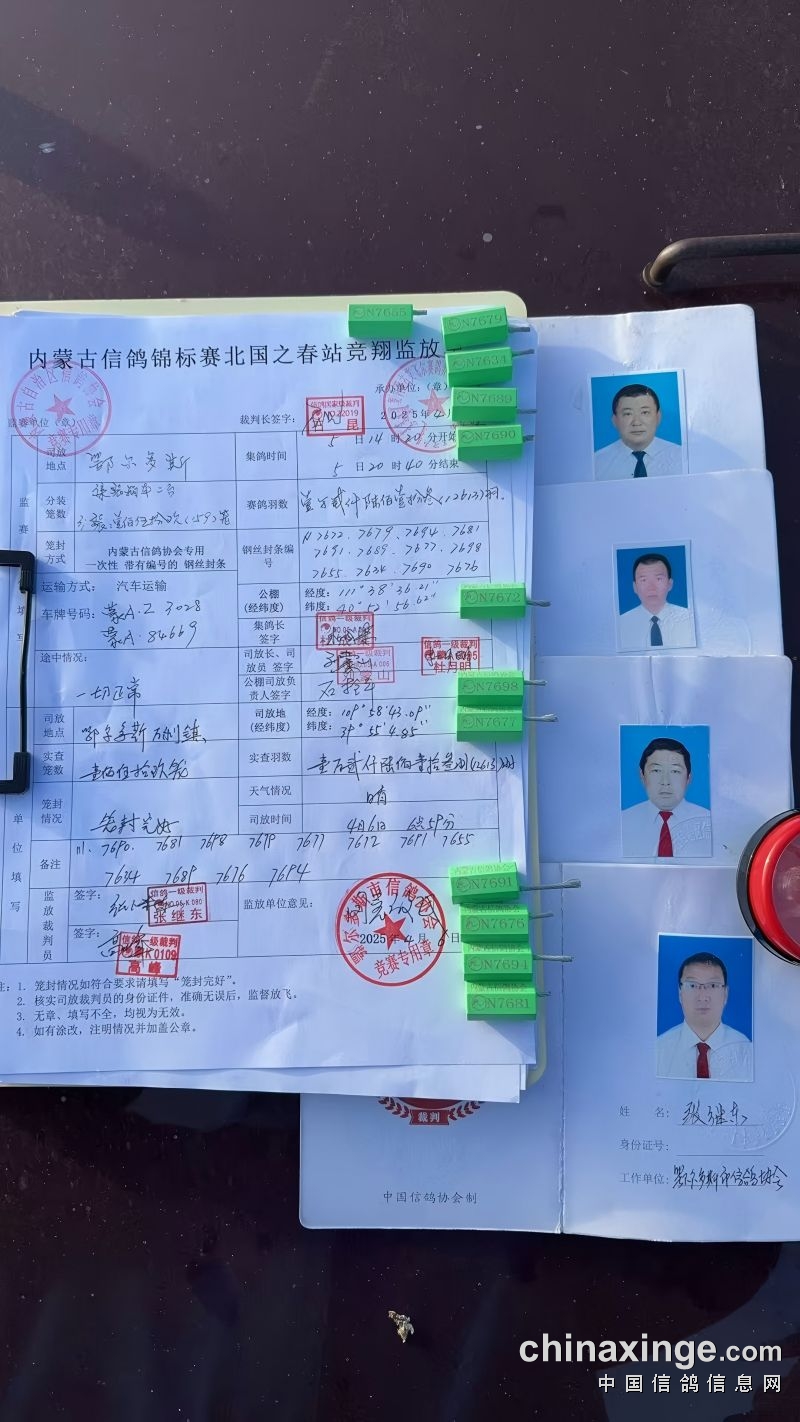 内蒙古信鸽锦标赛北国之春站竞翔监放
承办单位：（章）
监赛单位（章）
裁判长签字：
2025年4月
司放地点 鄂尔多斯
集鸽时间 5日14时20分开始
5日20时40分结束
分装笼数
赛鸽羽数 壹万贰仟陆佰壹拾叁（12613）羽
笼封方式 内蒙古信鸽协会专用
一次性 带有编号的 钢丝封条
钢丝封条编号 N7672、7679、7694、7681
7691、7689、7677、7698
7655、7634、7690、7676
运输方式： 汽车运输
车牌号码：蒙A·Z3028
蒙A·84669
公棚（经纬度） 经度：111°38′36.21″
纬度：40°52′56.62″
集鸽长签字
途中情况：
一切正常
司放长、司放员 签字
公棚司放负责人签字
司放地点
司放地（经纬度） 经度：109°58′43.09″
纬度：39°35′4.85″
实查笼数 壹佰伍拾玖笼
实查羽数 壹万贰仟陆佰壹拾叁羽（12613）羽
笼封情况 笼封完好
天气情况 晴
司放时间 4月6日 6点59分
备注 N、7690、7681 7698 7679 7677 7672 7691 7655
7634 7689 7676 7694
监放裁判员
签字：
签字：
监放单位意见：
2025年4月6日
注：1. 笼封情况如符合要求请填写“笼封完好”。
2. 核实司放裁判员的身份证件，准确无误后，监督放飞。
3. 无章、填写不全，均视为无效。
4. 如有涂改，注明情况并加盖公章。
信鸽一级裁判
张继东
信鸽一级裁判
高峰
信鸽一级裁判
杜月明
鄂尔多斯市信鸽协会
竞赛专用章
N7655
N7679
N7634
N7689
N7690
N7672
N7698
N7677
N7691
N7676
N7694
N7681
裁判
中国信鸽协会制
姓 名：张继东
身份证号：
工作单位：鄂尔多斯市信鸽协会
chinaxinge.com
中国信鸽信息网